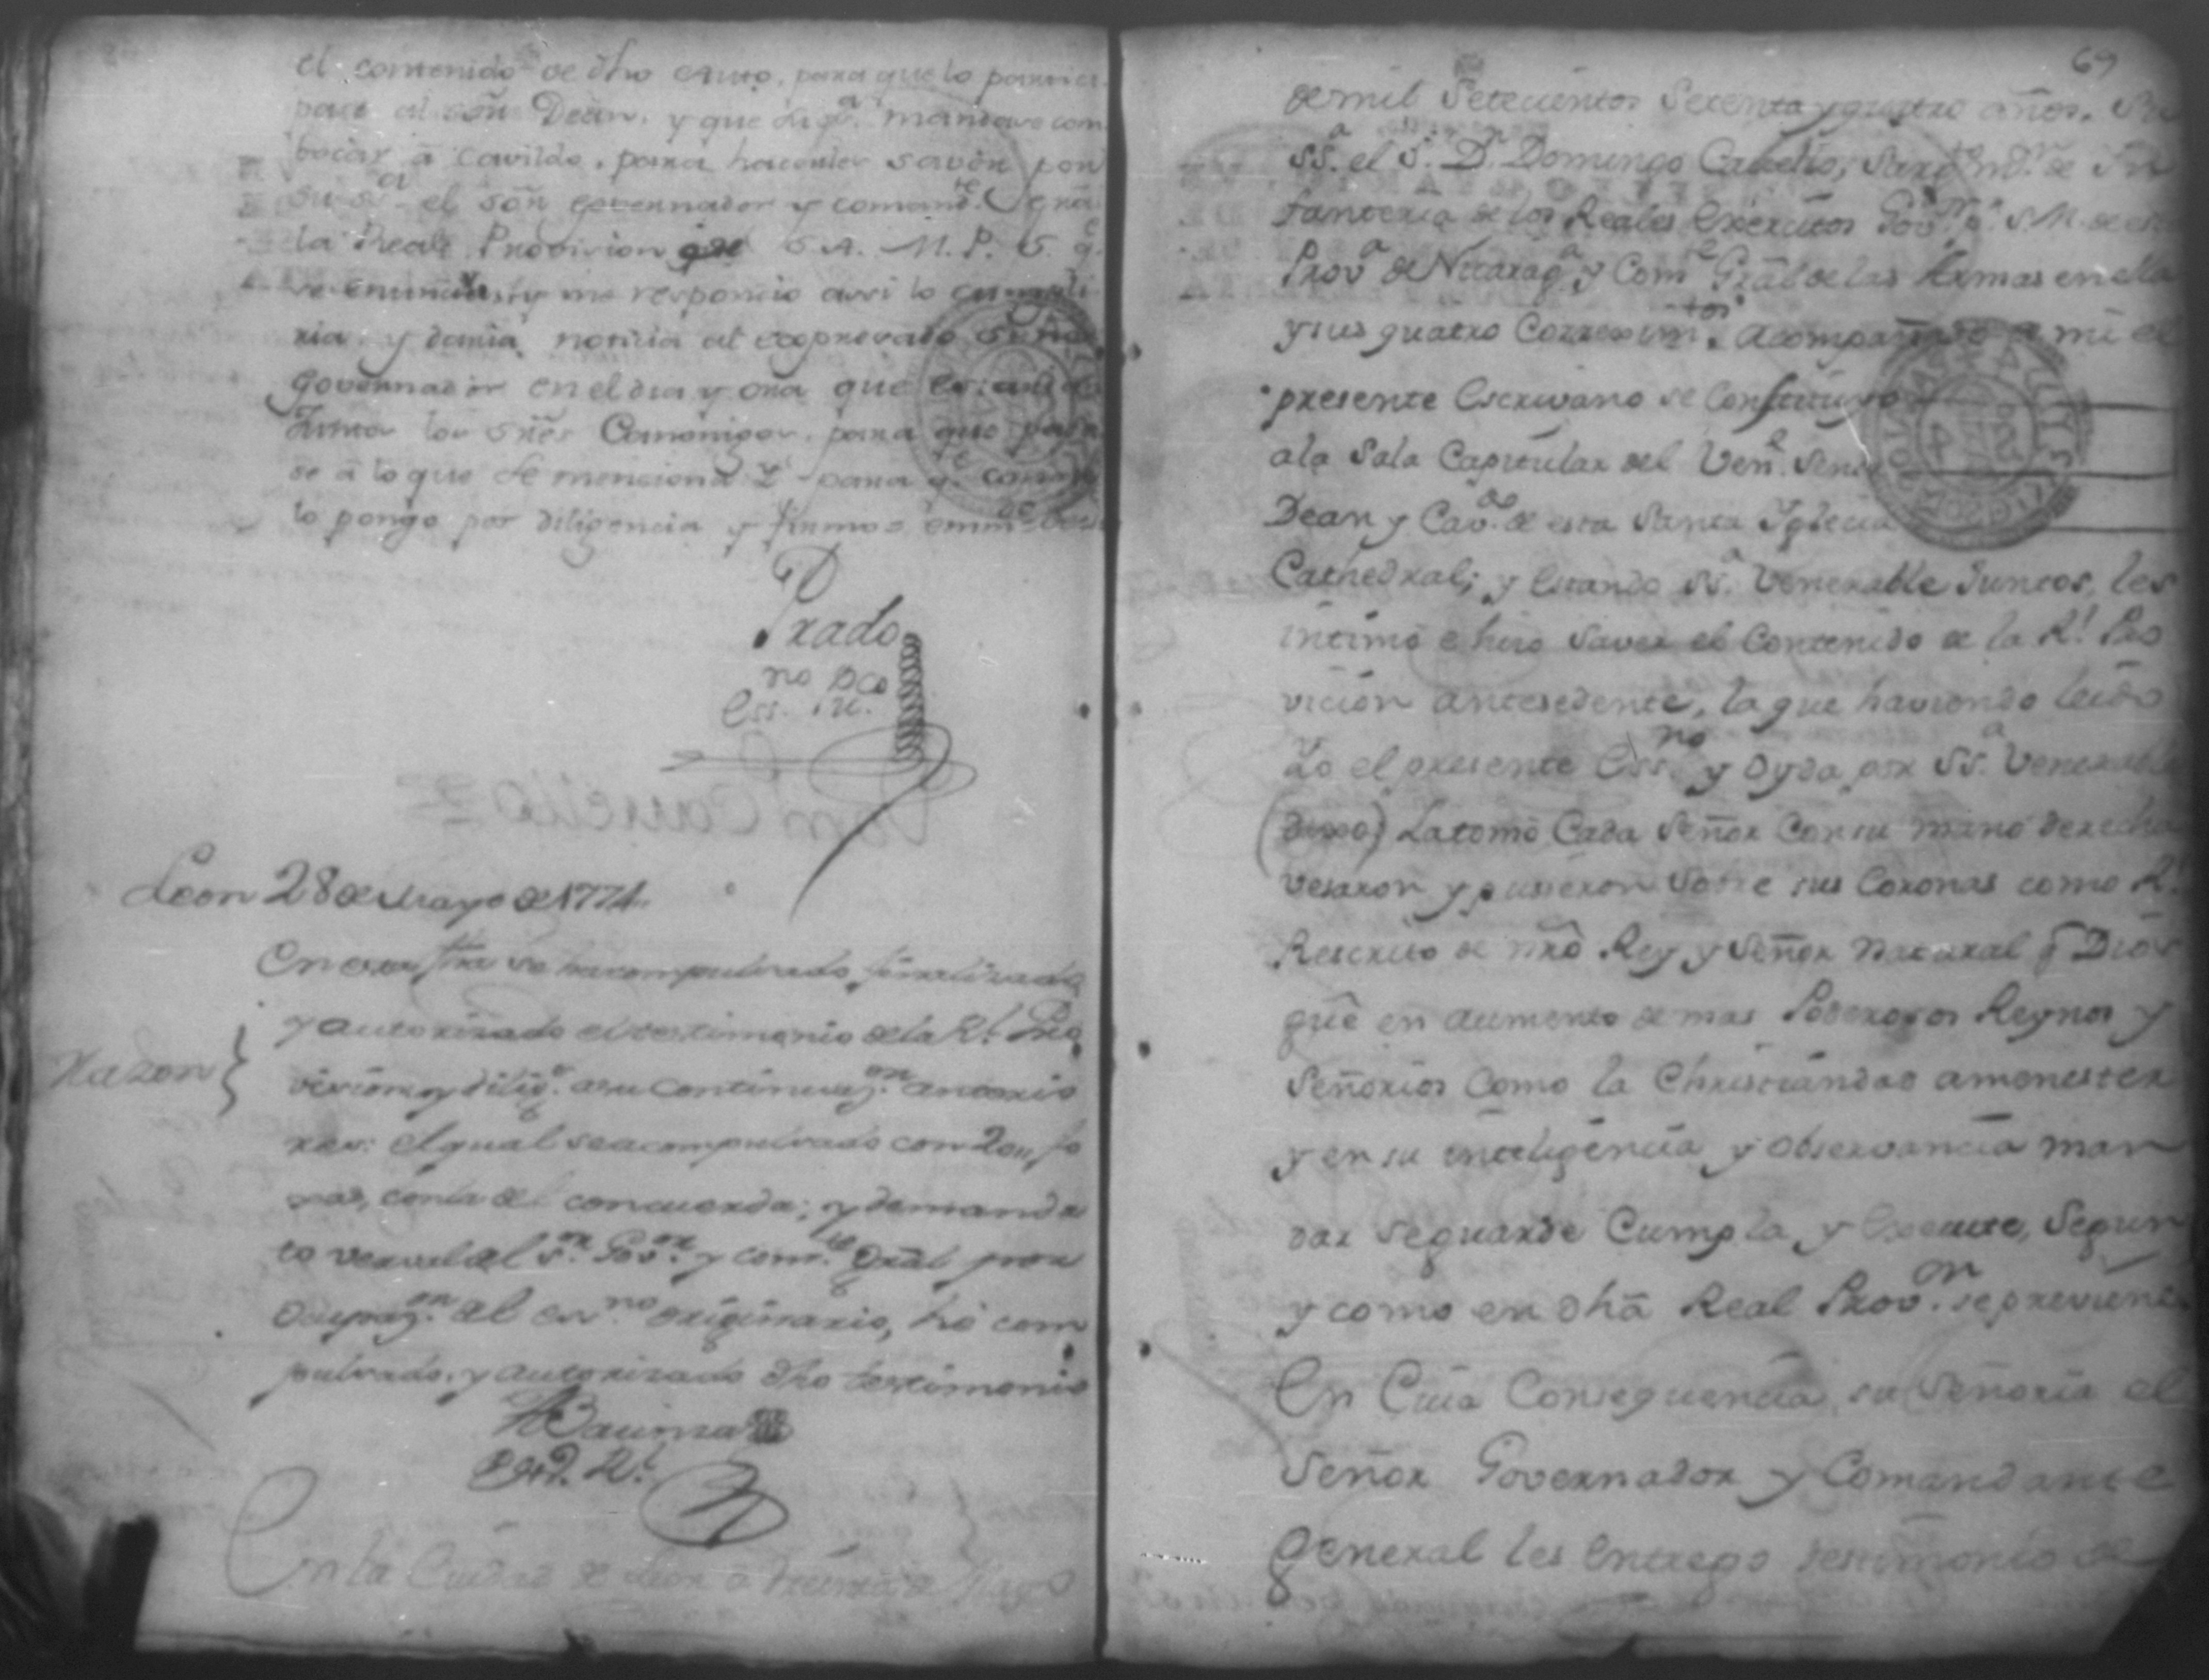 el contenido de dho auto, para que lo partici
pase al señ Dean, y que su sª. mandase com
bocar â Cavildo, para hacerles saver por
su sª el señ governador y comandte. Gral.
la Real Provision que S. A. M. P. S. qe.
se enuncia, y me respondio assi lo cumpli
ria, y daria noticia al expresado Señor
Governador en el dia y ora que
Juntos los sres Canonigos, para que pasa
se â lo que se menciona Y para qe. conste
lo pongo por diligencia y firmo =
Prado
no pco
Ess. Rl.
Leon 28 de Mayo de 1774.
En esta fha se ha compulsado, finalizado
y autorizado el testimonio de la Rl. Pro
Razon
vision y diligs. a su continuazon. anterio
res: el qual sea compulsado con
xas, con la del concuerda; y de manda
to verval del Sor. Govor. y comte. Gral por
Ocupazon. del essno. originario, hê com
pulsado, y autorizado dho testimonio
En la Ciudad de Leon a treinta de Mayo
69
de mil Setecientos Setenta y quatro años. Su
Sª. el S. Dn. Domingo Cavello, Sargto. mr. de In
fanteria de los Reales Exercitos Govor. pr. S. M. de esta
Provª de Nicaragª. y Come. Gral de las Armas en ella
y sus quatro Correximtos. acompañado de mi el
presente Escrivano se Constituyo
ala Sala Capitular del Vene. Señor
Dean y Cavdo. de esta Santa Iglecia
Cathedral; y estando SSª. Venerable Juntos, les
intimó e hizo saver el Contenido de la Rl. Pro
vicion antesedente, la que haviendo leido
Yo el presente Essno. y Oyda por SSª. Venerable
(dixo) La tomó Cada Señor Con su mano derecha
vesaron y pusieron sobre sus Coronas como Rl.
Rescrito de nro Rey y Señor Natural q̄ Dios
guê en aumento de mas Poderosos Reynos y
Señorios Como la Christiandad amenester
y en su inteligencia y observancia man
dar se guarde Cumpla y Execute, Segun
y como en dhã Real Provon. se previene
En Cuia Consequencia, su Señoria el
Señor Governador y Comandante
General les entrego testimonio de